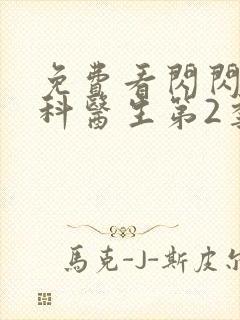 免費看閃閃
科醫生第2季
馬克-J-斯皮尔